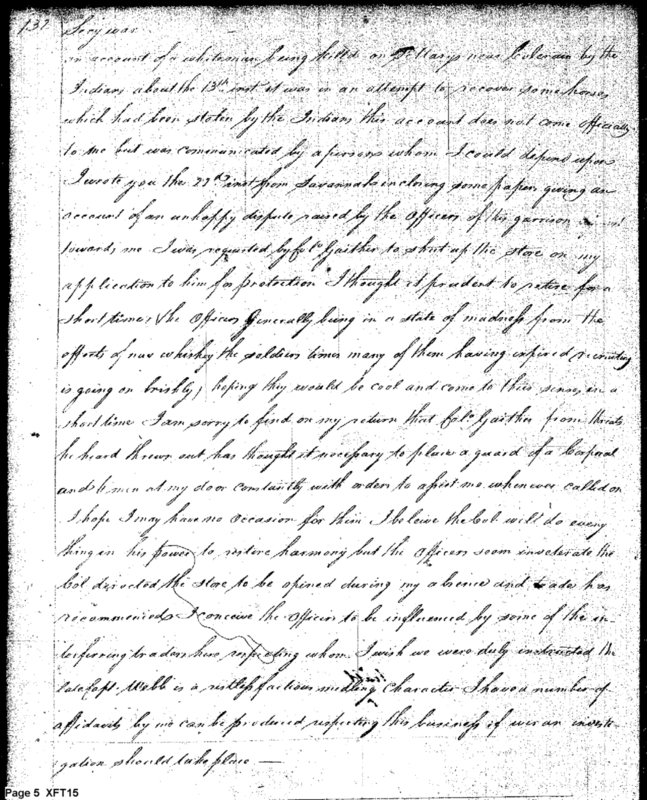 137
Secy war
an account of a whiteman being killd on St Marys near Colerain by the
Indians about the 13th inst it was in an attempt to recover some horses
which had been stolen by the Indians this account does not come officially
to me but was communicated by a person whom I could depend upon
I wrote you the 27th inst from Savannah inclosing some papers giving an
account of an unhappy dispute raised by the Officers of this garrison
towards me I was requested by Colo Gaither to shut up the store on my
application to him for protection I thought it prudent to retire for a
short time, the Officers generally being in a state of madness from the
effects of new whiskey the soldiers times many of them having expired recruiting
is going on briskly, hoping they would be cool and come to their senses in a
short time I am sorry to find on my return that Colo Gaither from threats
he heard thrown out has thought it necessary to place a guard of a Corporal
and 6 men at my door constantly with orders to assist me whenever called on
I hope I may have no occasion for them I beleive the Col. will do every
thing in his power to restore harmony but the Officers seem inveterate the
Col directed the store to be opined during my absence and trade has
recommenced I conceive the Officers to be influenced by some of the in-
terferring traders here respecting whom I wish we were duly instructed the
late Capt. Webb is a restless factious medling Character I have a number of
affidavits by me can be produced respecting this business if ever an investi-
gation should take place —
Page 5 XFT15